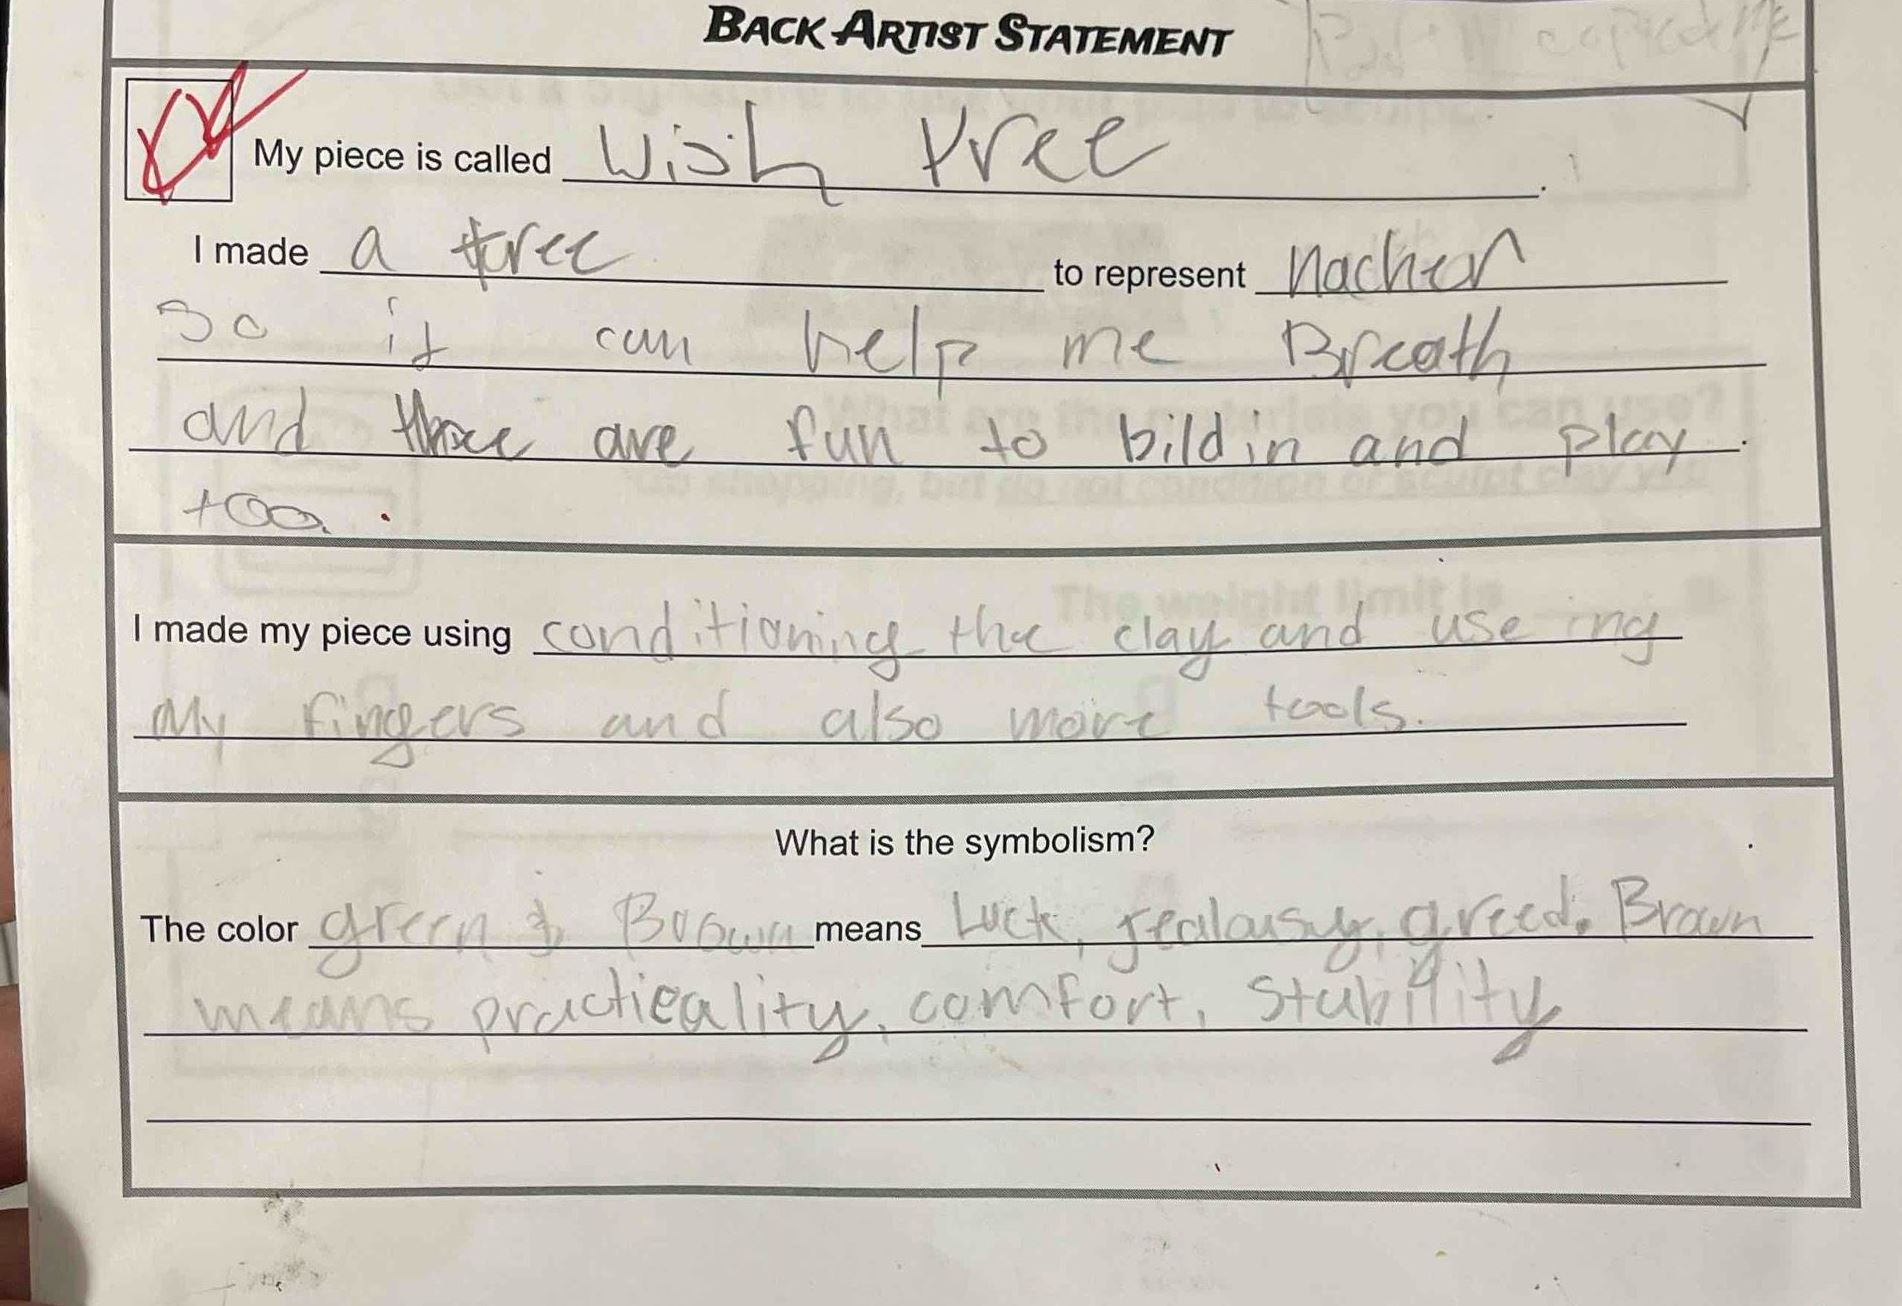 BACK ARTIST STATEMENT
My piece is called Wish tree.
I made a tree to represent Nacher
So it can help me Breath
and those are fun to bild in and play.
too.
I made my piece using conditioning the clay and use ing
My fingers and also more tools.
What is the symbolism?
The color green & Boown means Luck, jealousy, greed. Brown
means practicality, comfort, stability